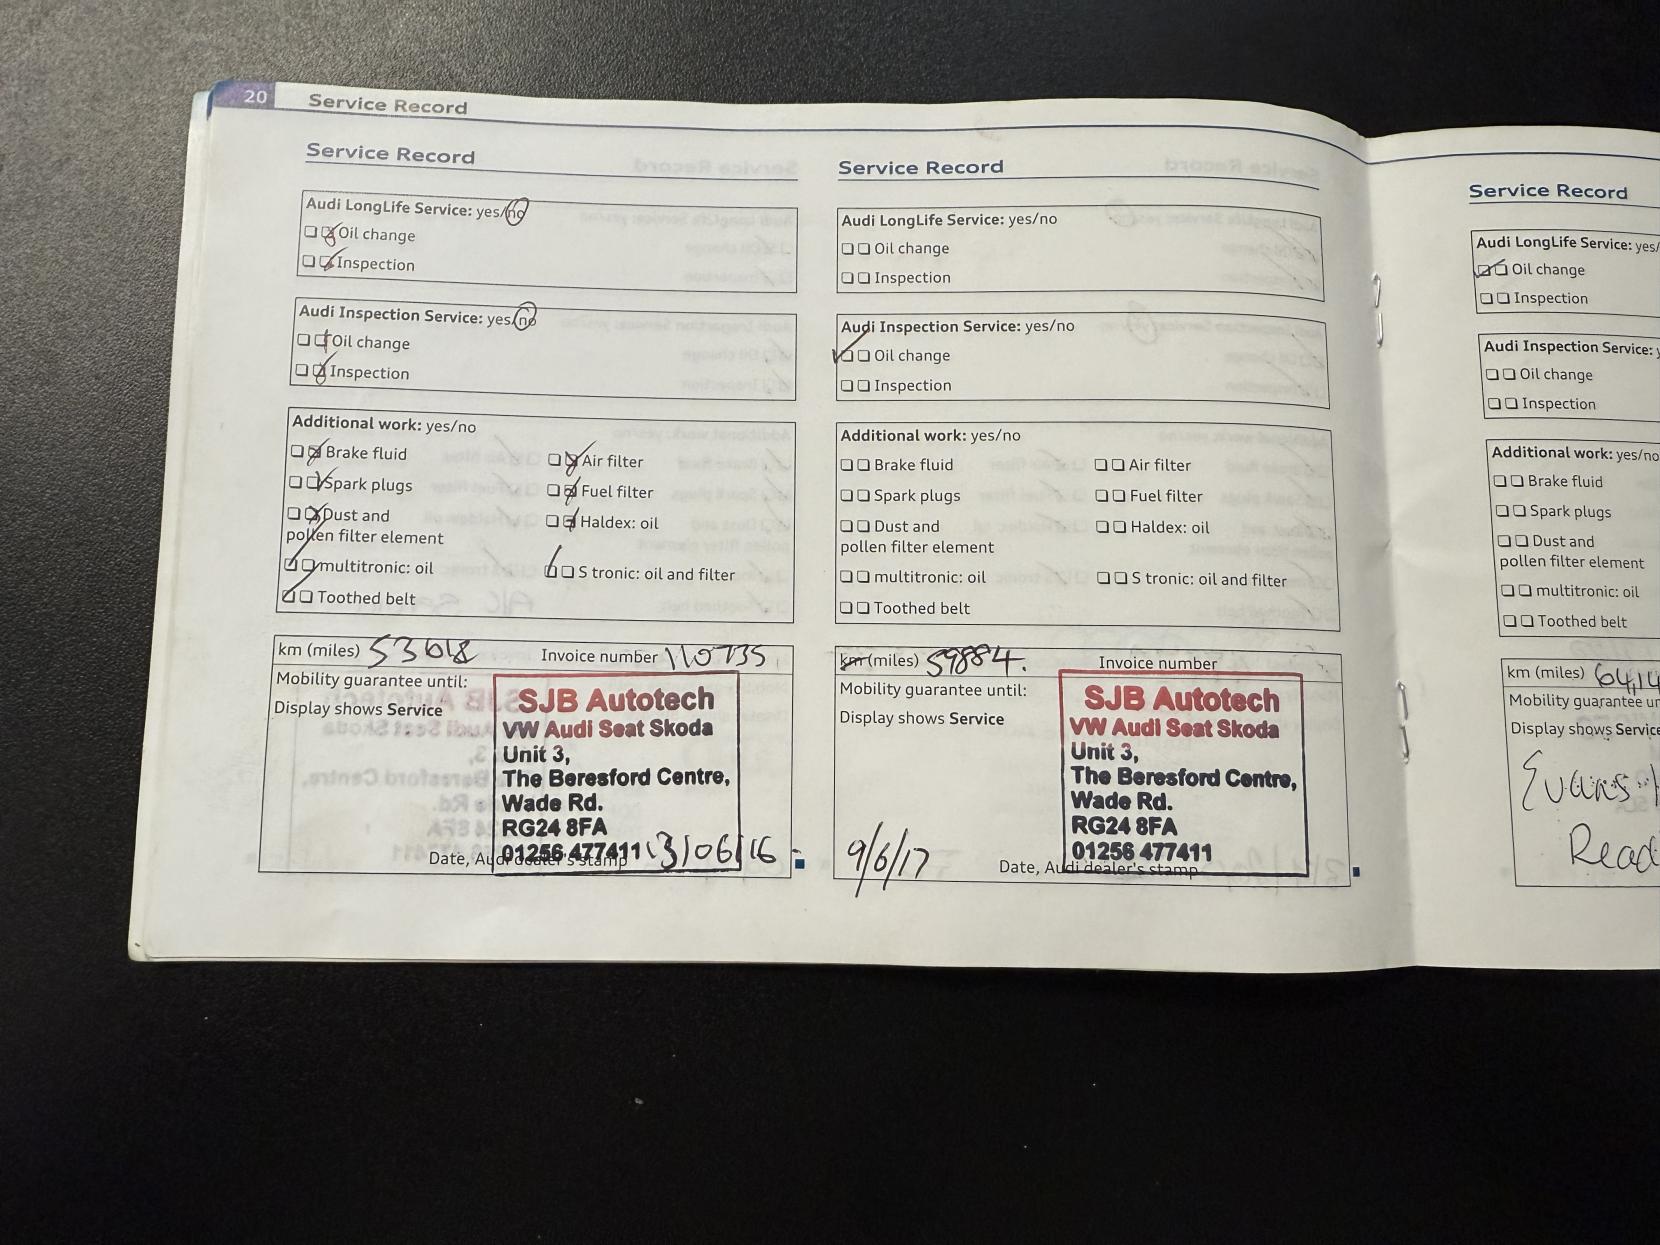 20 Service Record
Service Record
Audi LongLife Service: yes/no
Oil change
Inspection
Audi Inspection Service: yes/no
Oil change
Inspection
Additional work: yes/no
Brake fluid Air filter
Spark plugs Fuel filter
Dust and Haldex: oil
pollen filter element
multitronic: oil S tronic: oil and filter
Toothed belt
km (miles) 53618 Invoice number 110735
Mobility guarantee until:
Display shows Service
SJB Autotech
VW Audi Seat Skoda
Unit 3,
The Beresford Centre,
Wade Rd.
RG24 8FA
01256 477411 13/06/16
Date, Audi dealer's stamp
Service Record
Audi LongLife Service: yes/no
Oil change
Inspection
Audi Inspection Service: yes/no
Oil change
Inspection
Additional work: yes/no
Brake fluid Air filter
Spark plugs Fuel filter
Dust and Haldex: oil
pollen filter element
multitronic: oil S tronic: oil and filter
Toothed belt
km (miles) 59884. Invoice number
Mobility guarantee until:
Display shows Service
SJB Autotech
VW Audi Seat Skoda
Unit 3,
The Beresford Centre,
Wade Rd.
RG24 8FA
01256 477411
9/6/17
Date, Audi dealer's stamp
Service Record
Audi LongLife Service: yes/
Oil change
Inspection
Audi Inspection Service:
Oil change
Inspection
Additional work: yes/no
Brake fluid
Spark plugs
Dust and
pollen filter element
multitronic: oil
Toothed belt
km (miles) 64,14
Mobility guarantee un
Display shows Service
Evans
Read